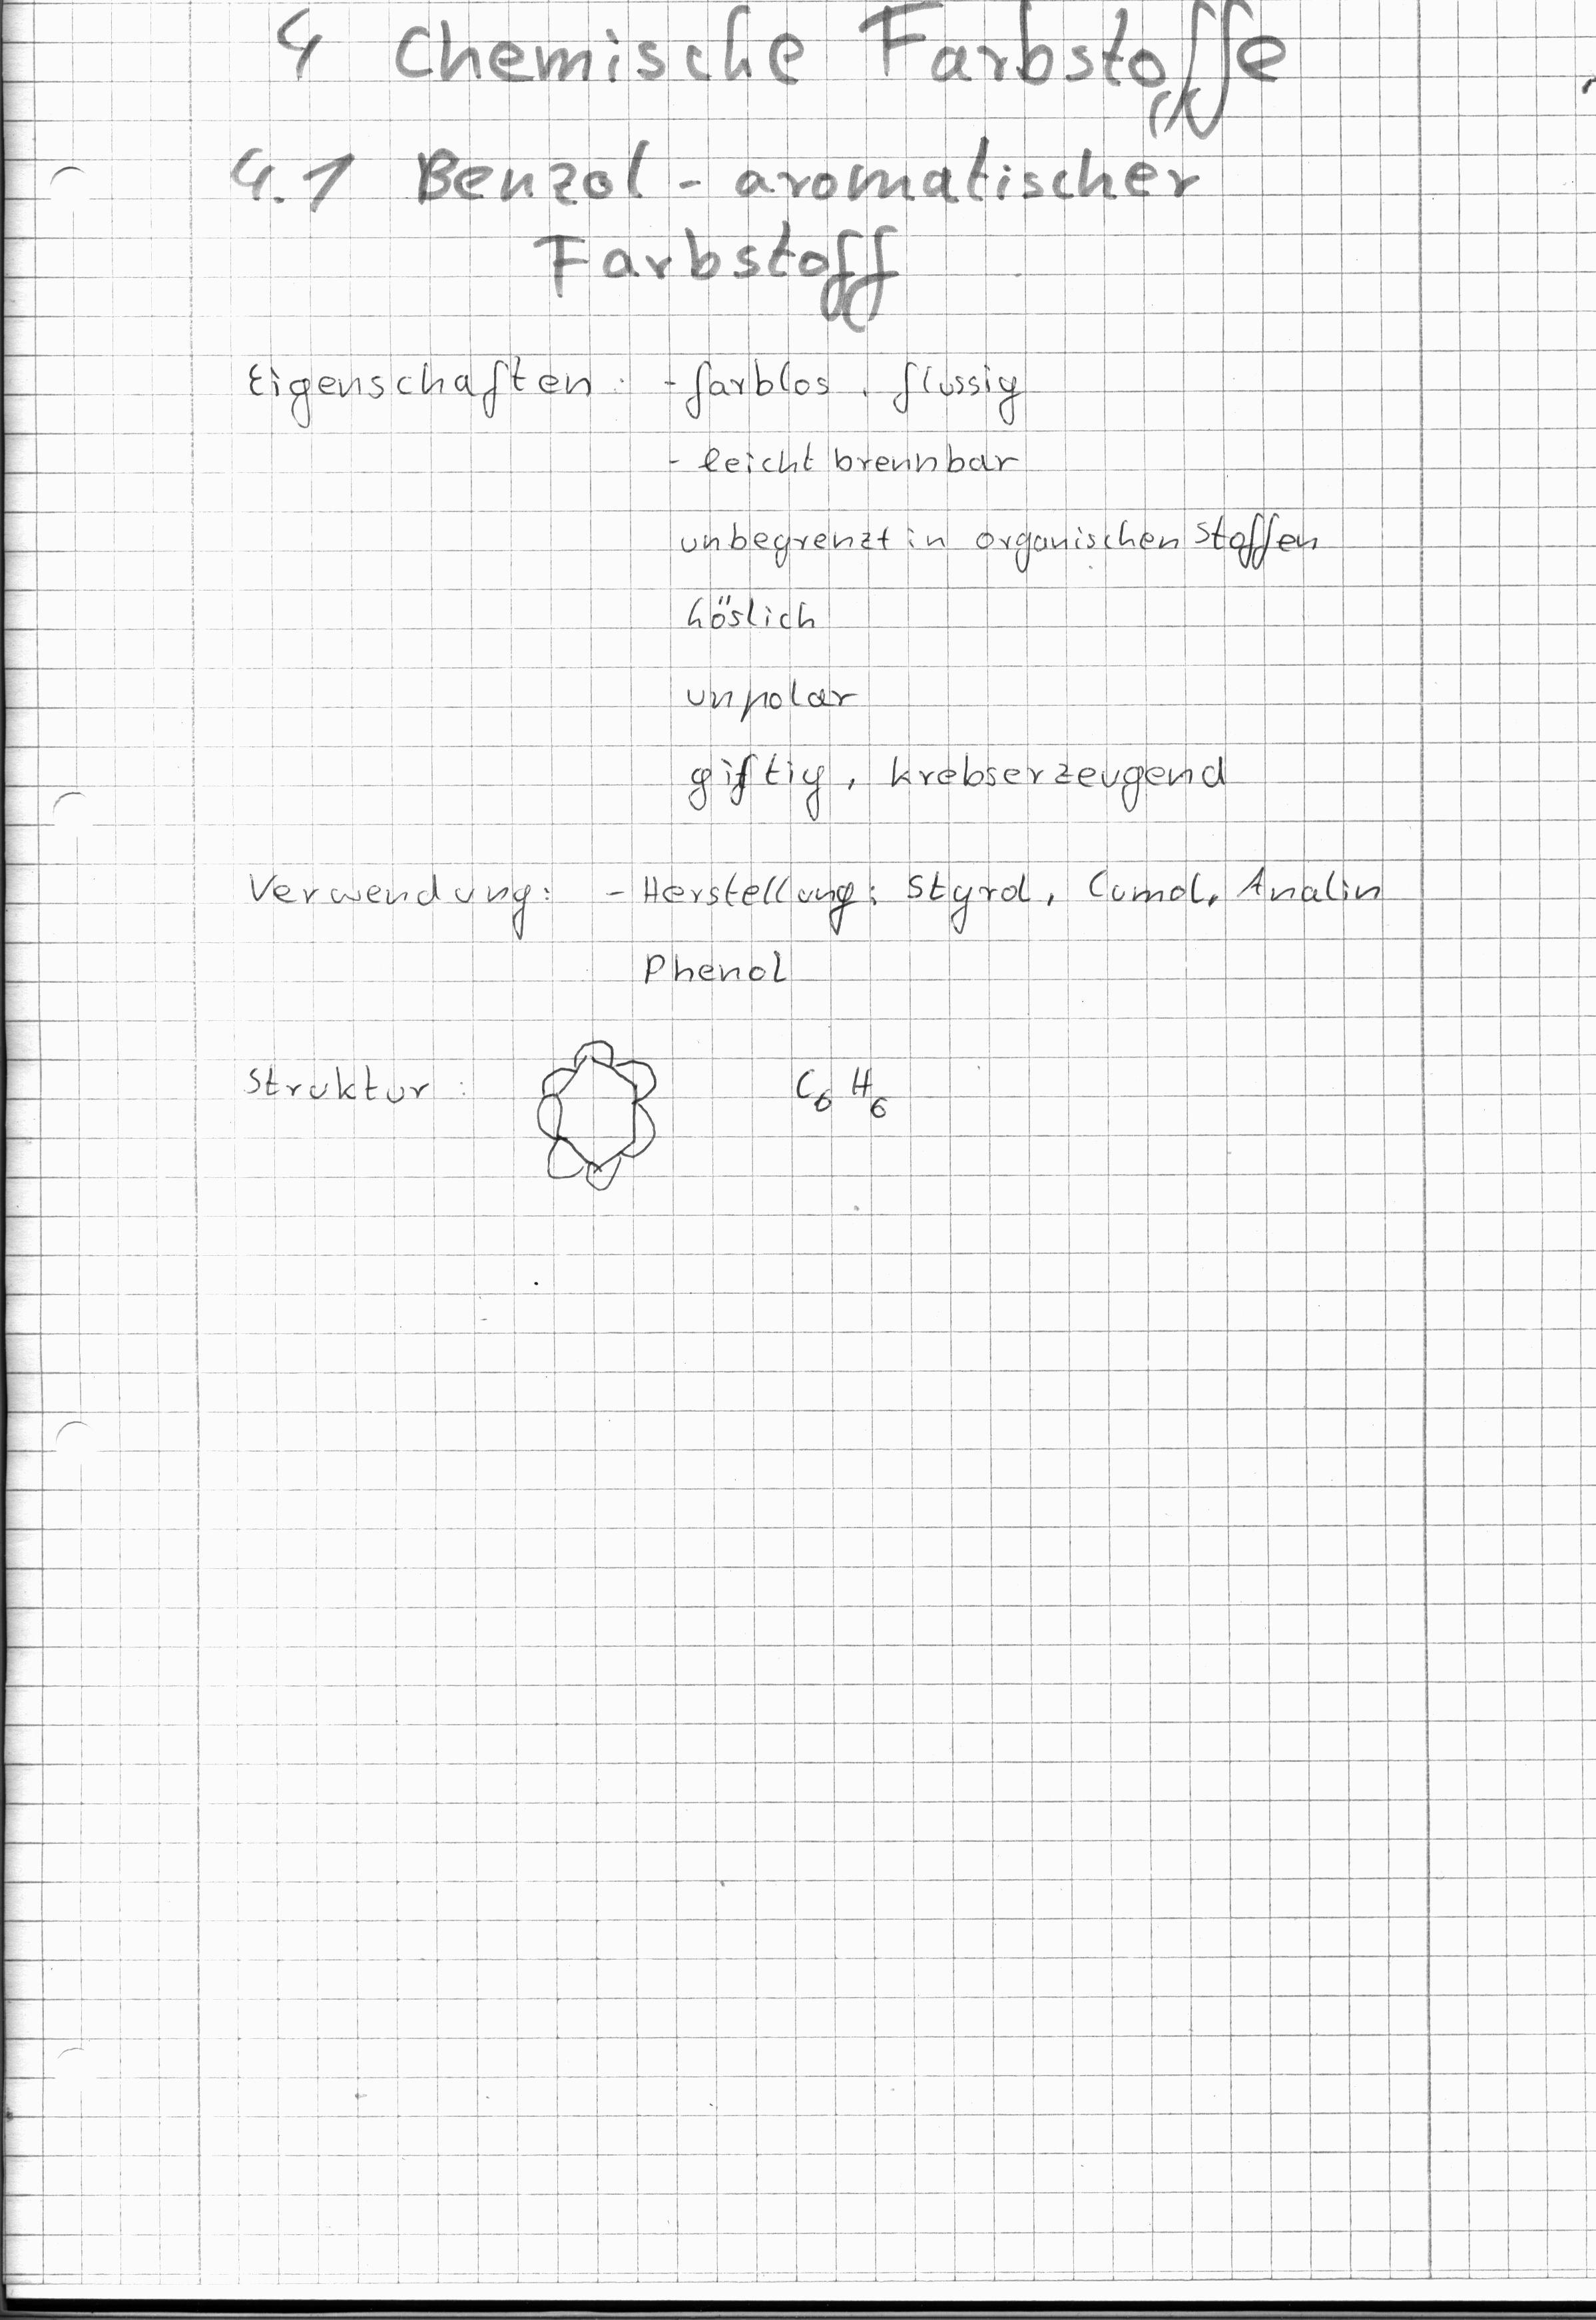 4 Chemische Farbstoffe
4.1 Benzol - aromatischer
Farbstoff
Eigenschaften: - farblos, flüssig
- leicht brennbar
unbegrenzt in organischen Stoffen
löslich
unpolar
giftig, krebserzeugend
Verwendung: - Herstellung: Styrol, Cumol, Analin
Phenol
Struktur: C6 H6